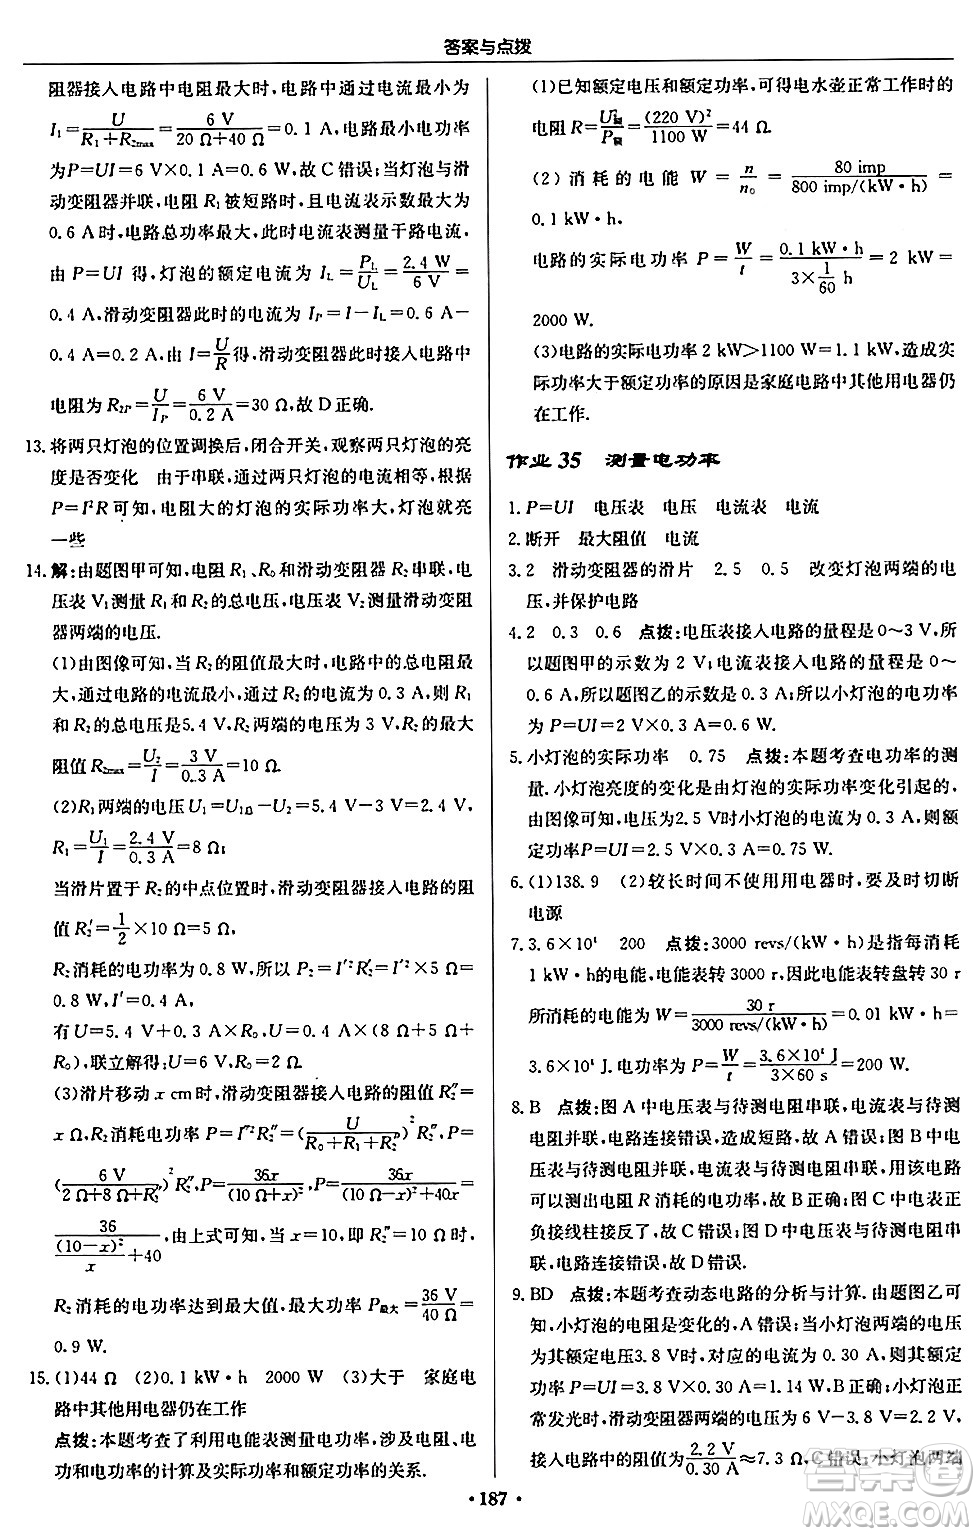 答案与点拨
阻器接入电路中电阻最大时,电路中电流最小为
I₁=U/(R₁+R₂max)=6 V/(20 Ω+40 Ω)=0.1 A,电路最小电功率
为P=UI=6 V×0.1 A=0.6 W,故 C 错误;当灯泡与滑
动变阻器并联,电阻 R₁被短路时,且电流表示数为
0.6 A时,电路总功率最大,由于电流表测量干路电流,
由 P=UI 得,灯泡的额定电流为 I_L=P_L/U_L=2.4 W/6 V=
0.4 A,滑动变阻器此时的电流为 I_P=I-I_L=0.6 A-
0.4 A=0.2 A,由 I=U/R得,滑动变阻器此时接入电路中
电阻为 R₂P=U/I_P=6 V/0.2 A=30 Ω,故 D正确.
13.将两只灯泡的位置调换后,闭合开关,观察两只灯泡的亮
度是否变化 由于串联,两只灯泡的电流相等,根据
P=I²R 可知,电阻大的灯泡的实际功率大,灯泡就亮
一些
14.解:由题图甲可知,电阻 R₁、R₀和滑动变阻器 R₂串联,电
压表 V₁测量 R₁和 R₂的总电压,电压表 V₂测量滑动变阻
器两端的电压.
(1)由图像可知,当 R₂的阻值最大时,电路中的总电阻最
大,通过电路的电流最小,通过的电流为 0.3 A,则 R₁
和 R₂的总电压是5.4 V,R₂两端的电压为 3 V,R₂的最大
阻值 R₂max=U₂/I=3 V/0.3 A=10 Ω.
(2)R₁两端的电压 U₁=U₁总-U₂=5.4 V-3 V=2.4 V,
R₁=U₁/I=2.4 V/0.3 A=8 Ω;
当滑片置于 R₂的中点位置时,滑动变阻器接入电路的阻
值 R₂′=1/2×10 Ω=5 Ω,
R₂消耗的电功率为 0.8 W,所以 P₂=I′²R₂′=I′²×5 Ω=
0.8 W,I′=0.4 A,
有 U=5.4 V+0.3 A×R₀,U=0.4 A×(8 Ω+5 Ω+
R₀),联立解得:U=6 V,R₀=2 Ω.
(3)滑片移动 x cm时,滑动变阻器接入电路的阻值 R₂″=
x Ω,R₂消耗电功率 P=I″²R₂″=(U/(R₀+R₁+R₂″))²R₂″=
(6 V/(2 Ω+8 Ω+R₂″))²R₂″=36x/(10 Ω+x)²=36x/((10 Ω-x)²+40x)=
36/((10-x)²/x+40),由上式可知,当 x=10 Ω时,即 R₂″=10 Ω时,
R₂消耗的电功率达到最大值,最大功率 P最大=36 V/40 Ω=
0.9 W.
15.(1)44 Ω (2)0.1 kW·h 2000 W (3)大于 家庭电
路中其他用电器仍在工作
点拨:本题考查了利用电能表测量电功率,涉及电阻、电
功和电功率的计算及实际功率和额定功率的关系.
(1)已知额定电压和额定功率,可得电水壶正常工作时的
电阻 R=U额²/P额=(220 V)²/1100 W=44 Ω.
(2)消耗的电能 W=n/n₀=80 imp/(800 imp/(kW·h))=
0.1 kW·h.
电路的实际电功率 P=W/t=0.1 kW·h/(3×1/60 h)=2 kW=
2000 W.
(3)电路的实际电功率 2 kW>1100 W=1.1 kW,造成实
际功率大于额定功率的原因是家庭电路中其他用电器仍
在工作.
作业 35 测量电功率
1.P=UI 电压表 电压 电流表 电流
2.断开 最大阻值 电流
3.2 滑动变阻器的滑片 2.5 0.5 改变灯泡两端的电
压,并保护电路
4.2 0.3 0.6 点拨:电压表接入电路的量程是0~3 V,所
以题图甲的示数为 2 V;电流表接入电路的量程为 0~
0.6 A,所以题图乙的示数是 0.3 A;所以小灯泡的电功率
为 P=UI=2 V×0.3 A=0.6 W.
5.小灯泡的实际功率 0.75 点拨:本题考查电功率的测
量.小灯泡亮度的变化是由灯泡的实际功率变化引起的,
由图像可知,电压为2.5 V时小灯泡的电流为 0.3 A,则额
定功率P=UI=2.5 V×0.3 A=0.75 W.
6.(1)138.9 (2)较长时间不使用用电器时,要及时切断
电源
7.3.6×10⁴ 200 点拨:3000 revs/(kW·h)是指每消耗
1 kW·h的电能,电能表转 3000 r,因此电能表转盘转 30 r
所消耗的电能为 W=30 r/(3000 revs/(kW·h))=0.01 kW·h=
3.6×10⁴ J.电功率 P=W/t=3.6×10⁴ J/(3×60 s)=200 W.
8.B 点拨:图 A 中电压表与待测电阻串联,电流表与待测
电阻并联,电路连接错误,造成短路,故 A 错误;图 B 中电
压表与待测电阻并联,电流表与待测电阻串联,用该电路
可以测出电阻 R 消耗的电功率,故 B 正确;图 C 中电表正
负接线柱接反了,故 C 错误;图 D 中电压表与待测电阻串
联,电路连接错误,故 D 错误.
9.BD 点拨:本题考查动态电路的分析与计算.由题图乙可
知,小灯泡的电阻是变化的,A 错误;当小灯泡正常发光时,
灯泡两端电压为3.8 V,电流为 0.30 A,小灯泡的额定
功率 P=UI=3.8 V×0.30 A=1.14 W,B 正确;小灯泡正
常发光时,滑动变阻器两端的电压为 6 V-3.8 V=2.2 V,
接入电路中的阻值为2.2 V/0.30 A≈7.3 Ω,C 错误;小灯泡两端
·187·
答案圈
MXQE.COM